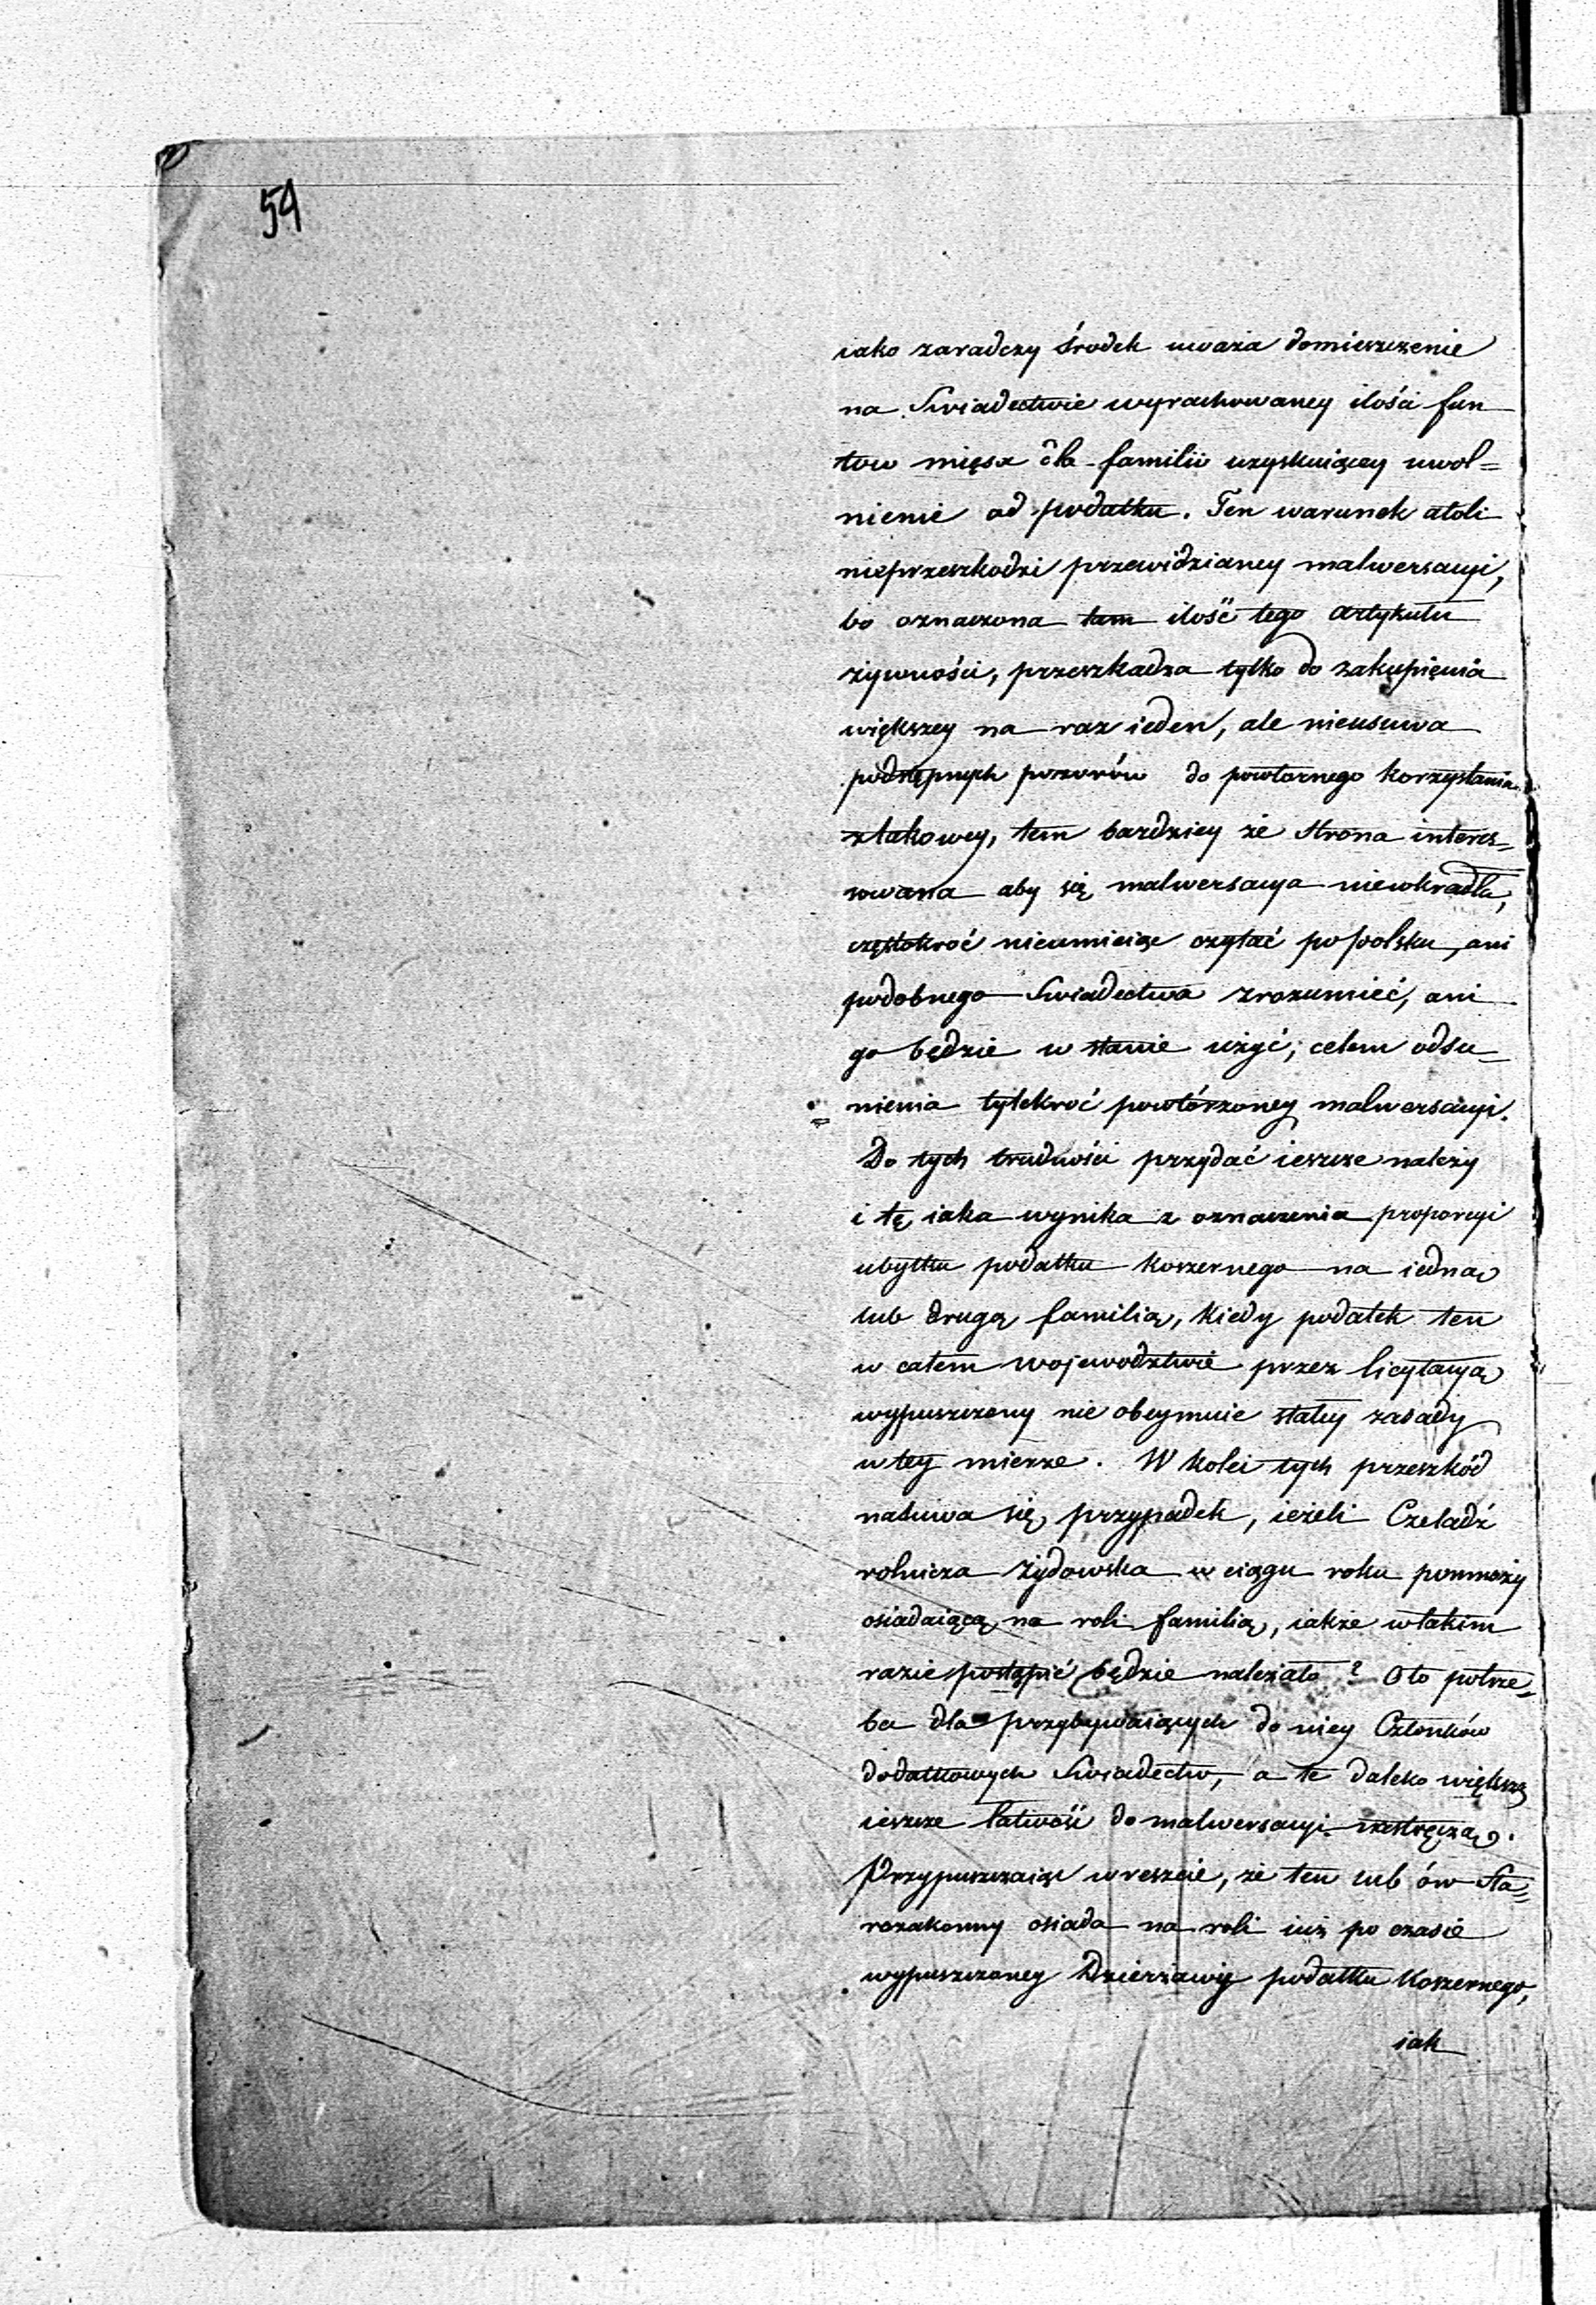 54
iako zaradczy środek uważa domieszczenie
na Swiadectwie wyrachowaney ilości fun
tow mięsa dla familii uzyskuiącey uwol=
nienie od podatku. Ten warunek atoli
nieprzeszkodzi przewidzianey malwersacyi,
bo oznaczona tam ilość tego artykułu
żywności, przeszkadza tylko do zakupienia
większey na raz ieden, ale nieusuwa
podstępnych pozorów do powtornego korzystania
ztakowey, tem bardziey że Strona interes=
sowana aby się malwersacya niewkradła,
częstokroć nieumieiąc czytać popolsku, ani
podobnego Swiadectwa zrozumieć, ani
go będzie w stanie użyć, celem odsu=
nienia tylekroć powtórzoney malwersacyi.
Do tych trudności przydać ieszcze należy
i tę iaka wynika z oznaczenia proporcyi
ubytku podatku koszernego na iedną
lub drugą familią, kiedy podatek ten
w całem Wojewodztwie przez licytacyą
wypuszczony nie obeymuie stałey zasady
wtey mierze. W kolei tych przeszkód
nasuwa się przypadek, ieżeli Czeladź
rolnicza żydowska w ciągu roku pomnoży
osiadaiącą na roli familią, iakże wtakim
razie postąpić będzie należało? Oto potrze=
ba dla przybywaiących do niey Członków
dodatkowych Swiadectw, a te daleko większą
ieszcze łatwość do malwersacyi nastręczą.
Przypuszczaiąc wreszcie, że ten lub ów Sta=
rozakonny osiada na roli iuż po czasie
wypuszczoney Dzierżawie podatku Koszernego,
iak